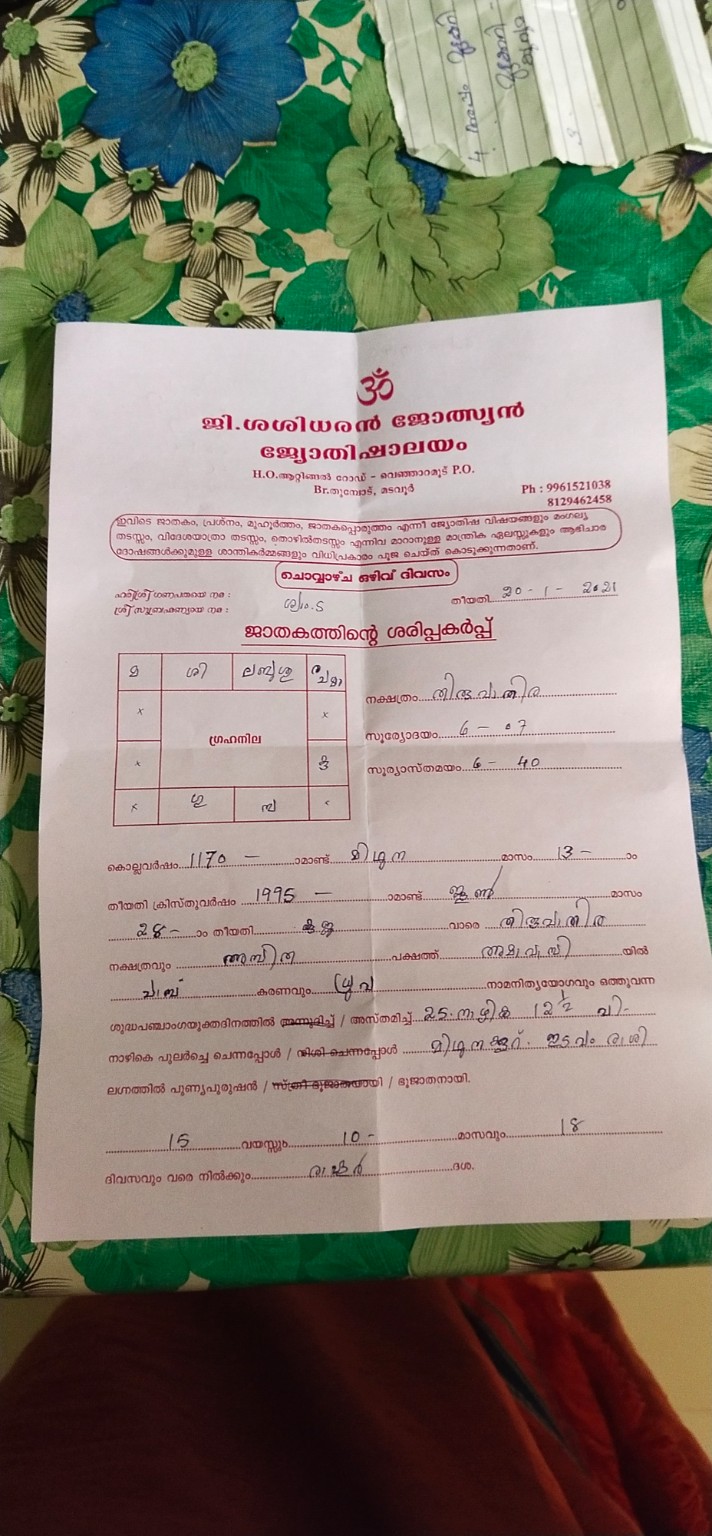 ॐ
ജി.ശശിധരൻ ജോത്സ്യൻ
ജ്യോതിഷാലയം
H.O.ആറ്റിങ്ങൽ റോഡ് - വെഞ്ഞാറമൂട് P.O.
Br.തുമ്പോട്, മടവൂർ
Ph : 9961521038
8129462458
ഇവിടെ ജാതകം, പ്രശ്നം, മുഹൂർത്തം, ജാതകപ്പൊരുത്തം എന്നീ ജ്യോതിഷ വിഷയങ്ങളും മംഗല്യ
തടസ്സം, വിദേശയാത്രാ തടസ്സം, തൊഴിൽതടസ്സം എന്നിവ മാറാനുള്ള മാന്ത്രിക ഏലസ്സുകളും ആഭിചാര
ദോഷങ്ങൾക്കുമുള്ള ശാന്തികർമ്മങ്ങളും വിധിപ്രകാരം പൂജ ചെയ്ത് കൊടുക്കുന്നതാണ്.
ചൊവ്വാഴ്ച ഒഴിവ് ദിവസം
ഹരിശ്രീ ഗണപതയെ നമ :
ശ്രീ സുബ്രഹ്മണ്യായ നമ :
തീയതി 20 - 1 - 2021
ജാതകത്തിന്റെ ശരിപ്പകർപ്പ്
മ ശി
x x
ഗ്രഹനില
x കു
x
നക്ഷത്രം തിരുവാതിര
സൂര്യോദയം 6 - 07
സൂര്യാസ്തമയം 6 - 40
കൊല്ലവർഷം 1170 - ാമാണ്ട് മിഥുന മാസം 13 - ാം
തീയതി ക്രിസ്തുവർഷം 1995 - ാമാണ്ട് ജൂൺ മാസം
28 - ാം തീയതി വാരെ തിരുവാതിര
നക്ഷത്രവും അസിത പക്ഷത്ത് അമാവാസി യിൽ
കരണവും ധ്രുവ നാമനിത്യയോഗവും ഒത്തുവന്ന
ശുദ്ധപഞ്ചാംഗയുക്തദിനത്തിൽ / അസ്തമിച്ച് 25. നാഴിക 12 1/2 വി-
നാഴികെ പുലർച്ചെ ചെന്നപ്പോൾ / നിശി ചെന്നപ്പോൾ മിഥുനക്കൂറ്. ഇടവം രാശി
ലഗ്നത്തിൽ പുണ്യപുരുഷൻ / യി / ഭൂജാതനായി.
15 വയസ്സും 10 - മാസവും 18
ദിവസവും വരെ നിൽക്കും ദശ.